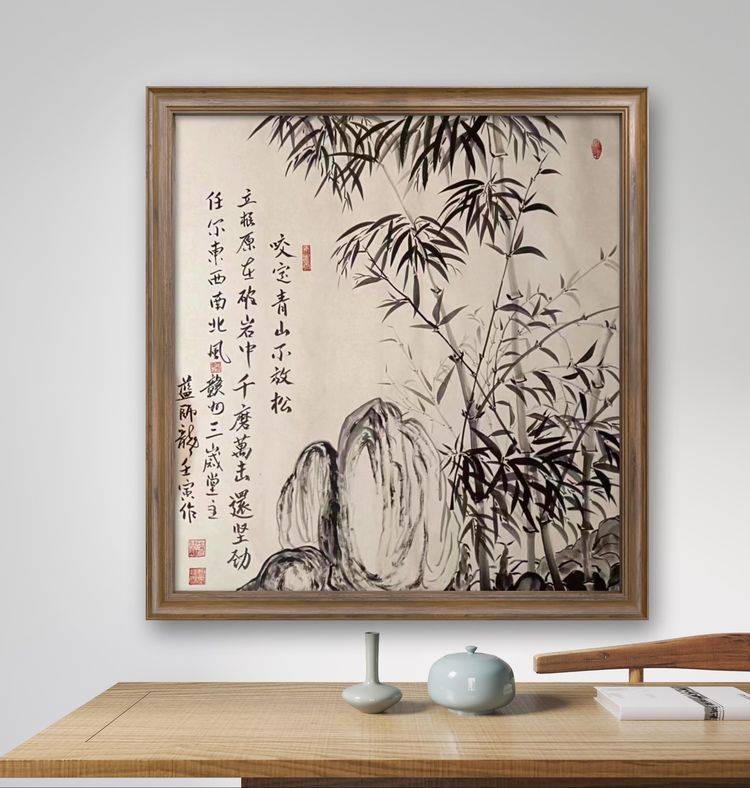 咬定青山不放松
立根原在破岩中千磨萬击還坚劲
任尔東西南北風贛州三嵗堂主
藍師龍壬寅作